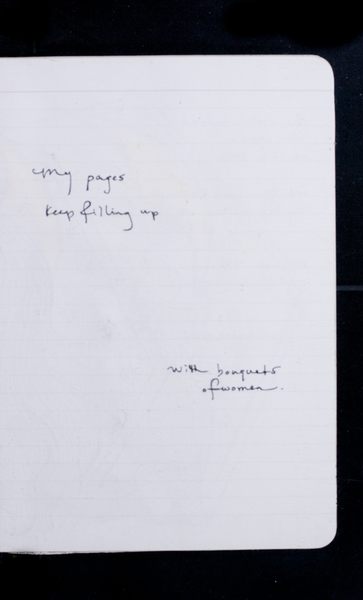 My pages
keep filling up
with bouquets
of women.